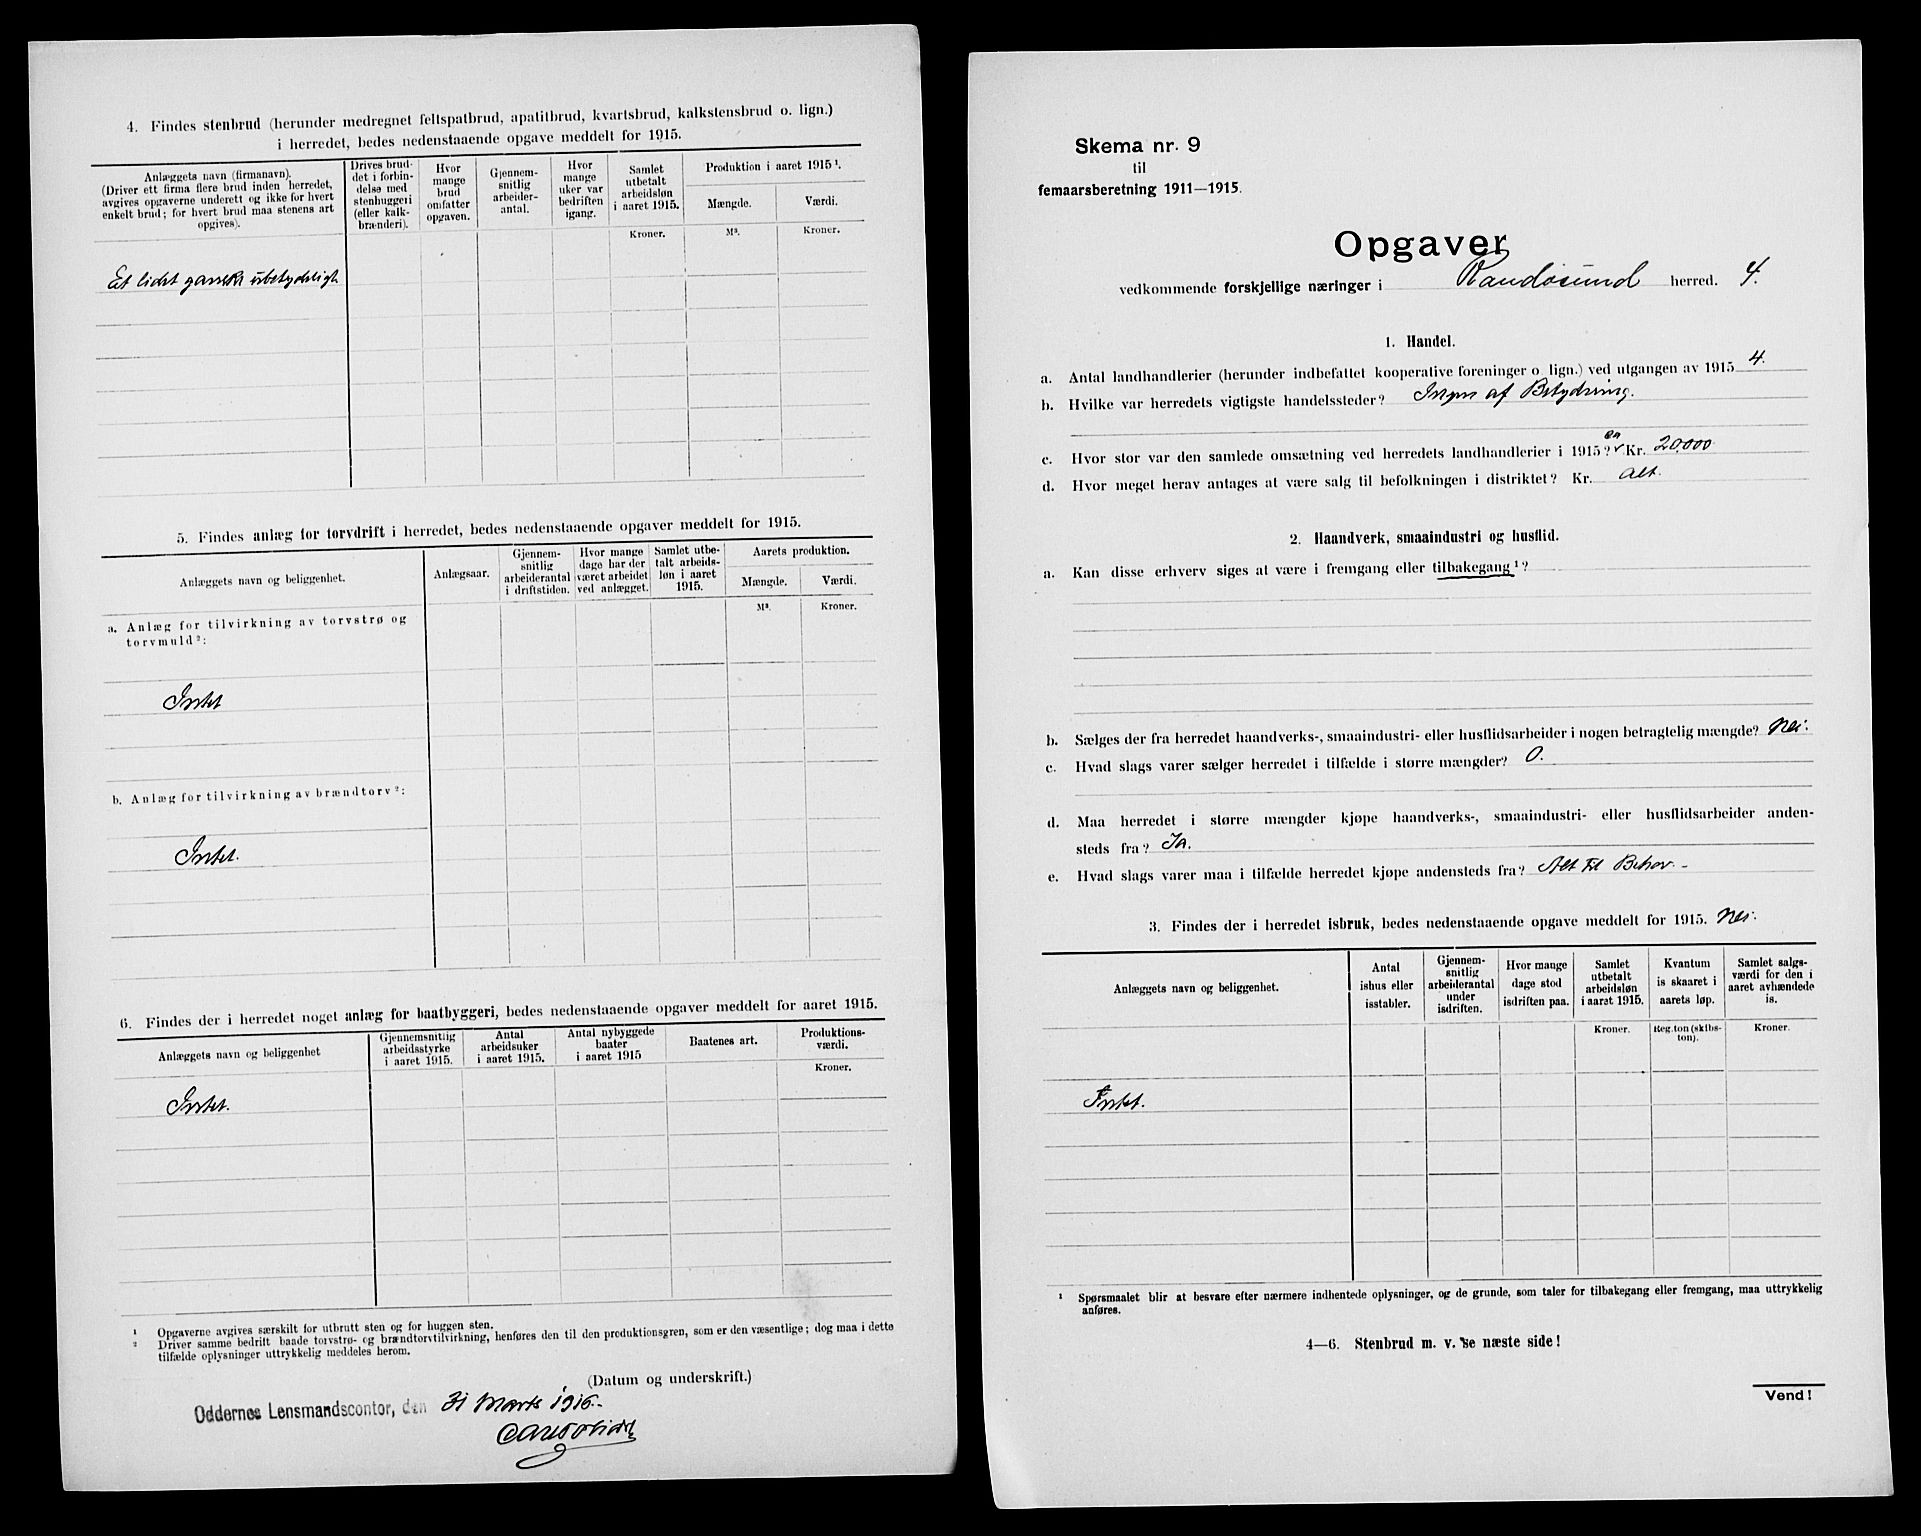 4. Findes stenbrud (herunder medregnet feltspatbrud, apatitbrud, kvartsbrud, kalkstensbrud o. lign.)
i herredet, bedes nedenstaaende opgave meddelt for 1915.
Anlæggets navn (firmanavn).
(Driver ett firma flere brud inden herredet,
avgives opgaverne underett og ikke for hvert
enkelt brud; for hvert brud maa stenens art
opgives).
Drives brud-
det i forbin-
delse med
stenhuggeri
(eller kalk-
brænderi).
Hvor
mange
brud
omfatter
opgaven.
Gjennem-
snitlig
arbeider-
antal.
Hvor
mange
uker var
bedriften
igang.
Samlet
utbetalt
arbeidsløn
i aaret 1915.
Produktion i aaret 1915¹.
Mængde.
Værdi.
Kroner.
M³.
Kroner.
Et lidet ganske ubetydeligt
5. Findes anlæg for torvdrift i herredet, bedes nedenstaaende opgaver meddelt for 1915.
Anlæggets navn og beliggenhet.
Anlægsaar.
Gjennem-
snitlig
arbeiderantal
i driftstiden.
Hvor mange
dage har der
været arbeidet
ved anlægget.
Samlet utbe-
talt arbeids-
løn i aaret
1915.
Aarets produktion.
Mængde.
Værdi.
M³.
Kroner.
a. Anlæg for tilvirkning av torvstrø og
torvmuld²:
Intet
b. Anlæg for tilvirkning av brændtorv²:
Intet.
6. Findes der i herredet noget anlæg for baatbyggeri, bedes nedenstaaende opgaver meddelt for aaret 1915.
Anlæggets navn og beliggenhet
Gjennemsnitlig
arbeidsstyrke
i aaret 1915.
Antal
arbeidsuker
i aaret 1915.
Antal nybyggede
baater
i aaret 1915
Baatenes art.
Produktions-
værdi.
Kroner.
Intet.
¹ Opgaverne avgives særskilt for utbrutt sten og for huggen sten.
² Driver samme bedrift baade torvstrø- og brændtorvtilvirkning, henføres den til den produktionsgren, som er den væsentlige; dog maa i dette
tilfælde oplysninger uttrykkelig meddeles herom.
(Datum og underskrift.)
Oddernes Lensmandscontor, den 31 Marts 1916.
Skema nr. 9
til
femaarsberetning 1911—1915.
Opgaver
vedkommende forskjellige næringer i Randøsund herred. 4.
1. Handel.
a. Antal landhandlerier (herunder indbefattet kooperative foreninger o. lign.) ved utgangen av 1915 4.
b. Hvilke var herredets vigtigste handelssteder? Ingen af Betydning.
c. Hvor stor var den samlede omsætning ved herredets landhandlerier i 1915? ca Kr. 20,000
d. Hvor meget herav antages at være salg til befolkningen i distriktet? Kr. Alt.
2. Haandverk, smaaindustri og husflid.
a. Kan disse erhverv siges at være i fremgang eller tilbakegang¹?
b. Sælges der fra herredet haandverks-, smaaindustri- eller husflidsarbeider i nogen betragtelig mængde? Nei.
c. Hvad slags varer sælger herredet i tilfælde i større mængder? O.
d. Maa herredet i større mængder kjøpe haandverks-, smaaindustri- eller husflidsarbeider anden-
steds fra? Ja.
e. Hvad slags varer maa i tilfælde herredet kjøpe andensteds fra? Alt til Behov.-
3. Findes der i herredet isbruk, bedes nedenstaaende opgave meddelt for 1915. Nei.
Anlæggets navn og beliggenhet.
Antal
ishus eller
isstabler.
Gjennem-
snitlig
arbeiderantal
under
isdriften.
Hvor mange
dage stod
isdriften paa.
Samlet
utbetalt
arbeidsløn
i aaret 1915.
Kvantum
is skaaret i
aarets løp.
Samlet salgs-
værdi for den i
aaret avhændede
is.
Kroner.
Reg.ton (sklbs-
ton).
Kroner.
Intet.
¹ Spørsmaalet blir at besvare efter nærmere indhentede oplysninger, og de grunde, som taler for tilbakegang eller fremgang, maa uttrykkelig
anføres.
4—6. Stenbrud m. v. se næste side!
Vend!